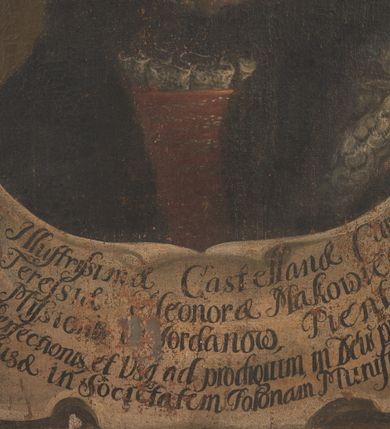 Illustrissimæ Castellanæ
Teresiæ Eleonoræ Makowie
Mysicen Jordanow, Pien
fectionis et Usq ad prodigium in Deu p
usæ in Societatem Polonam Munif